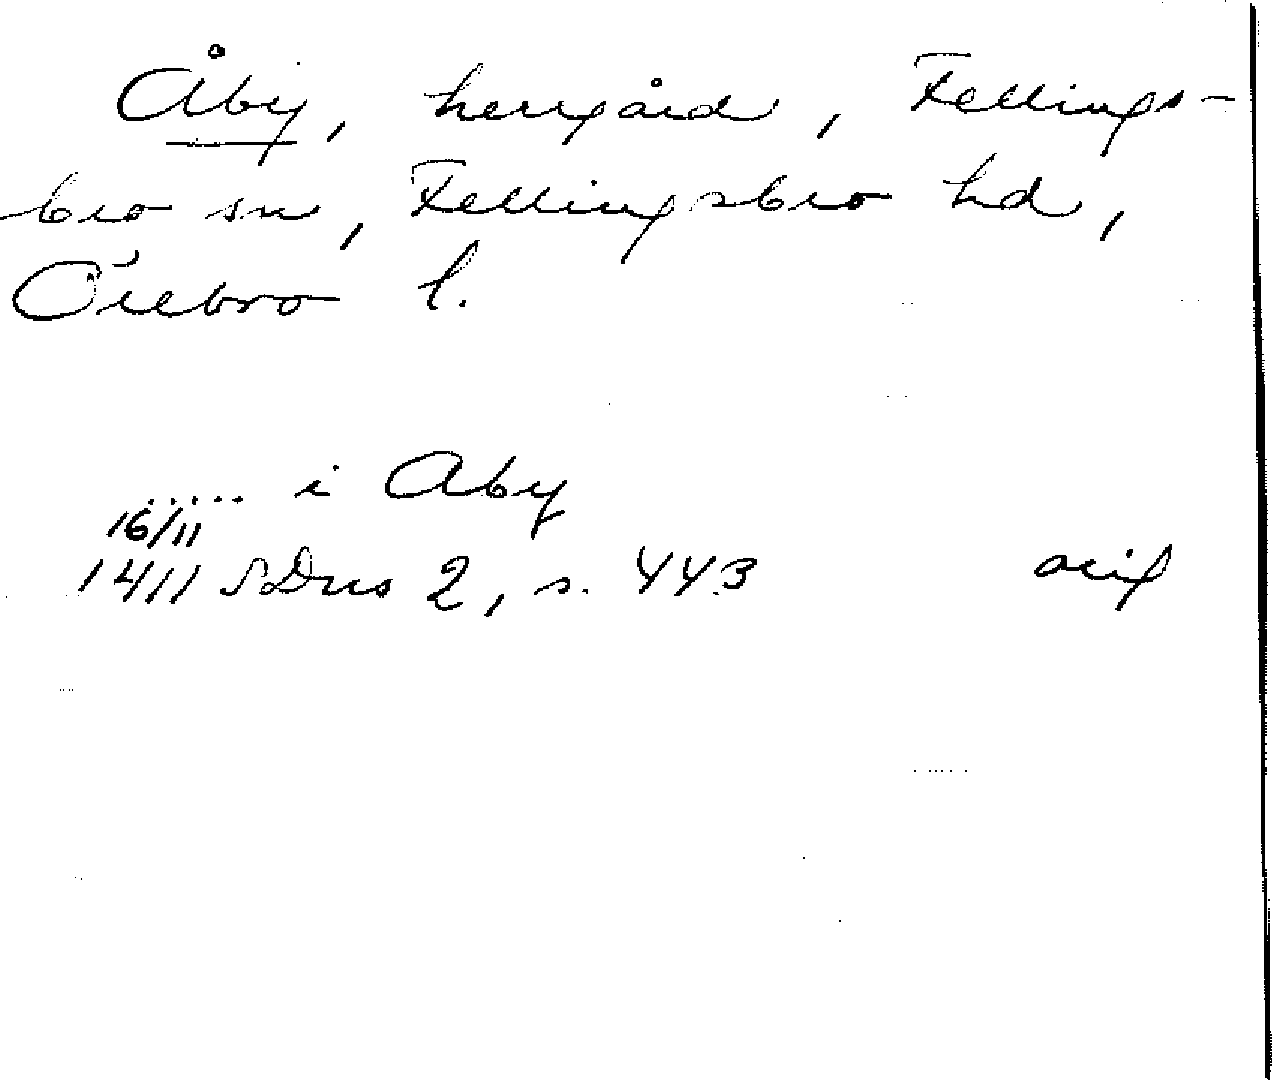 Åby, herrgård, Fellings-
bro sn, Fellingsbro hd,
Örebro l.
..... i Aby
16/11
1411 SDns 2, s. 443 orig